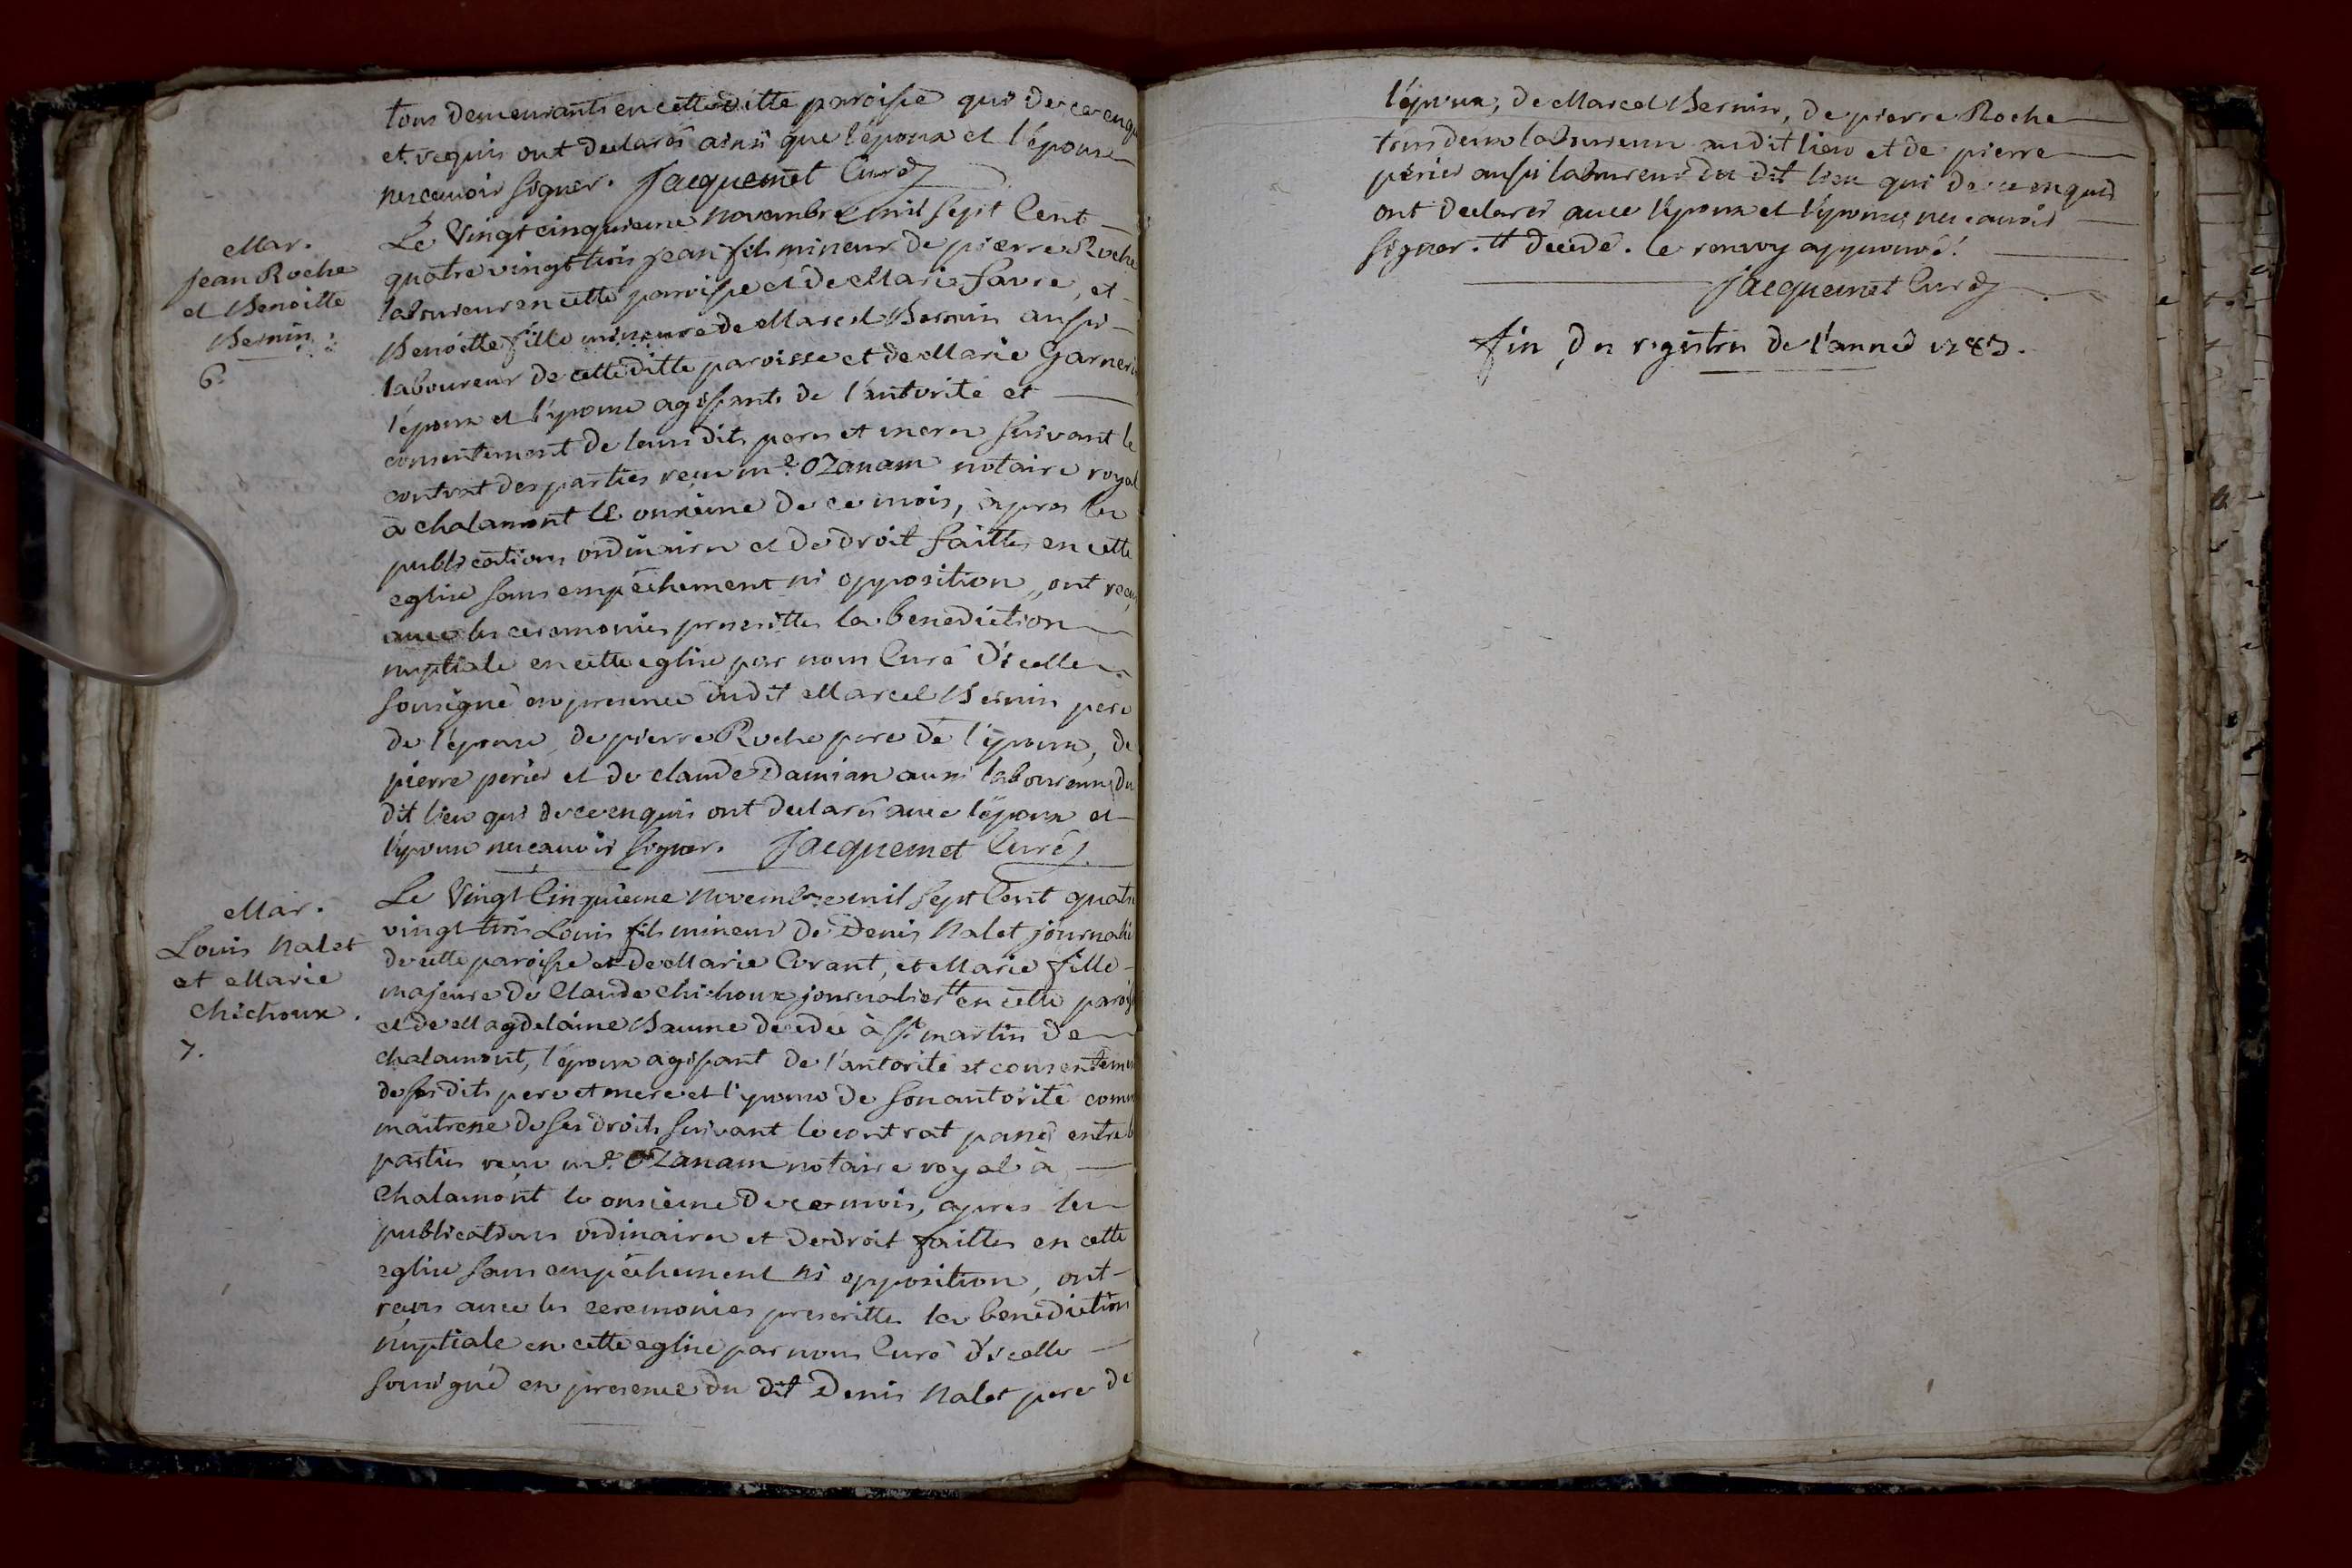 tous demeurants en cette ditte paroisse qui de ce enqu
et requis ont declarés ainsi que l'époux et l'épouse
ne scavoir signer. Jacquemet Curé
Mar.
Jean Roche
et Benoitte
Bernin.
6.
Le Vingt cinquieme novembre mil sept Cent
quatre vingt trois jean fils mineur de pierre Roche
laboureur en cette paroisse et de Marie favre, et
Benoitte fille mineure de Marcel Bernin aussi
laboureur de cette ditte paroisse et de Marie Garneri
l'époux et l'épouse agissants de l'autorité et
consentement de leurs dits peres et meres suivant le
contrat des parties reçu me. OZanam notaire royal
à chalamont le onzieme de ce mois, après les
publications ordinaires et de droit faittes en cette
eglise sans empéchement ni opposition, ont reçu
avec les ceremonies prescrittes la benediction
nuptiale en cette eglise par nous Curé d'icelle
sousigné en presence dudit Marcel Bernin pere
de l'épouse, de pierre Roche pere de l'époux, de
pierre perier et de claude Damian aussi laboureurs du
dit lieu qui de ce enquis ont declarés avec l'époux et
l'épouse ne scavoir signer. Jacquemet Curé
Mar.
Louis Nalet
et Marie
Chichoux.
7.
Le Vingt Cinquieme Novembre mil sept Cent quatre
vingt trois Louis fils mineur de Denis Nalet journali
de cette paroisse et de Marie Corant, et Marie fille
majeure de Claude Chichoux journalier tt en cette parois
et de Magdelaine Baume decedée à St. martin de
chalamont, l'époux agissant de l'autorité et consentemen
de ses dits pere et mere et l'épouse de son autorité comm
maitresse de ses droits suivant le contrat passé entre
parties reçu me. OZanam notaire royal à
Chalamont le onzieme de ce mois, apres les
publications ordinaires et de droit faittes en cette
eglise sans empéchement ni opposition, ont
reçus avec les ceremonies prescrittes la benediction
nuptiale en cette eglise par nous Curé d'icelle
sousigné en presence du dit Denis Nalet pere de
l'époux, de Marcel Bernin, de pierre Roche
tous deux laboureurs audit lieu et de pierre
périer aussi laboureur du dit lieu qui de ce enquis
ont declarés avec l'époux et l'épouse ne scavoir
signer. tt décédé. le renvoy approuvé.
Jacquemet Curé
fin du registre de l'année 1783.